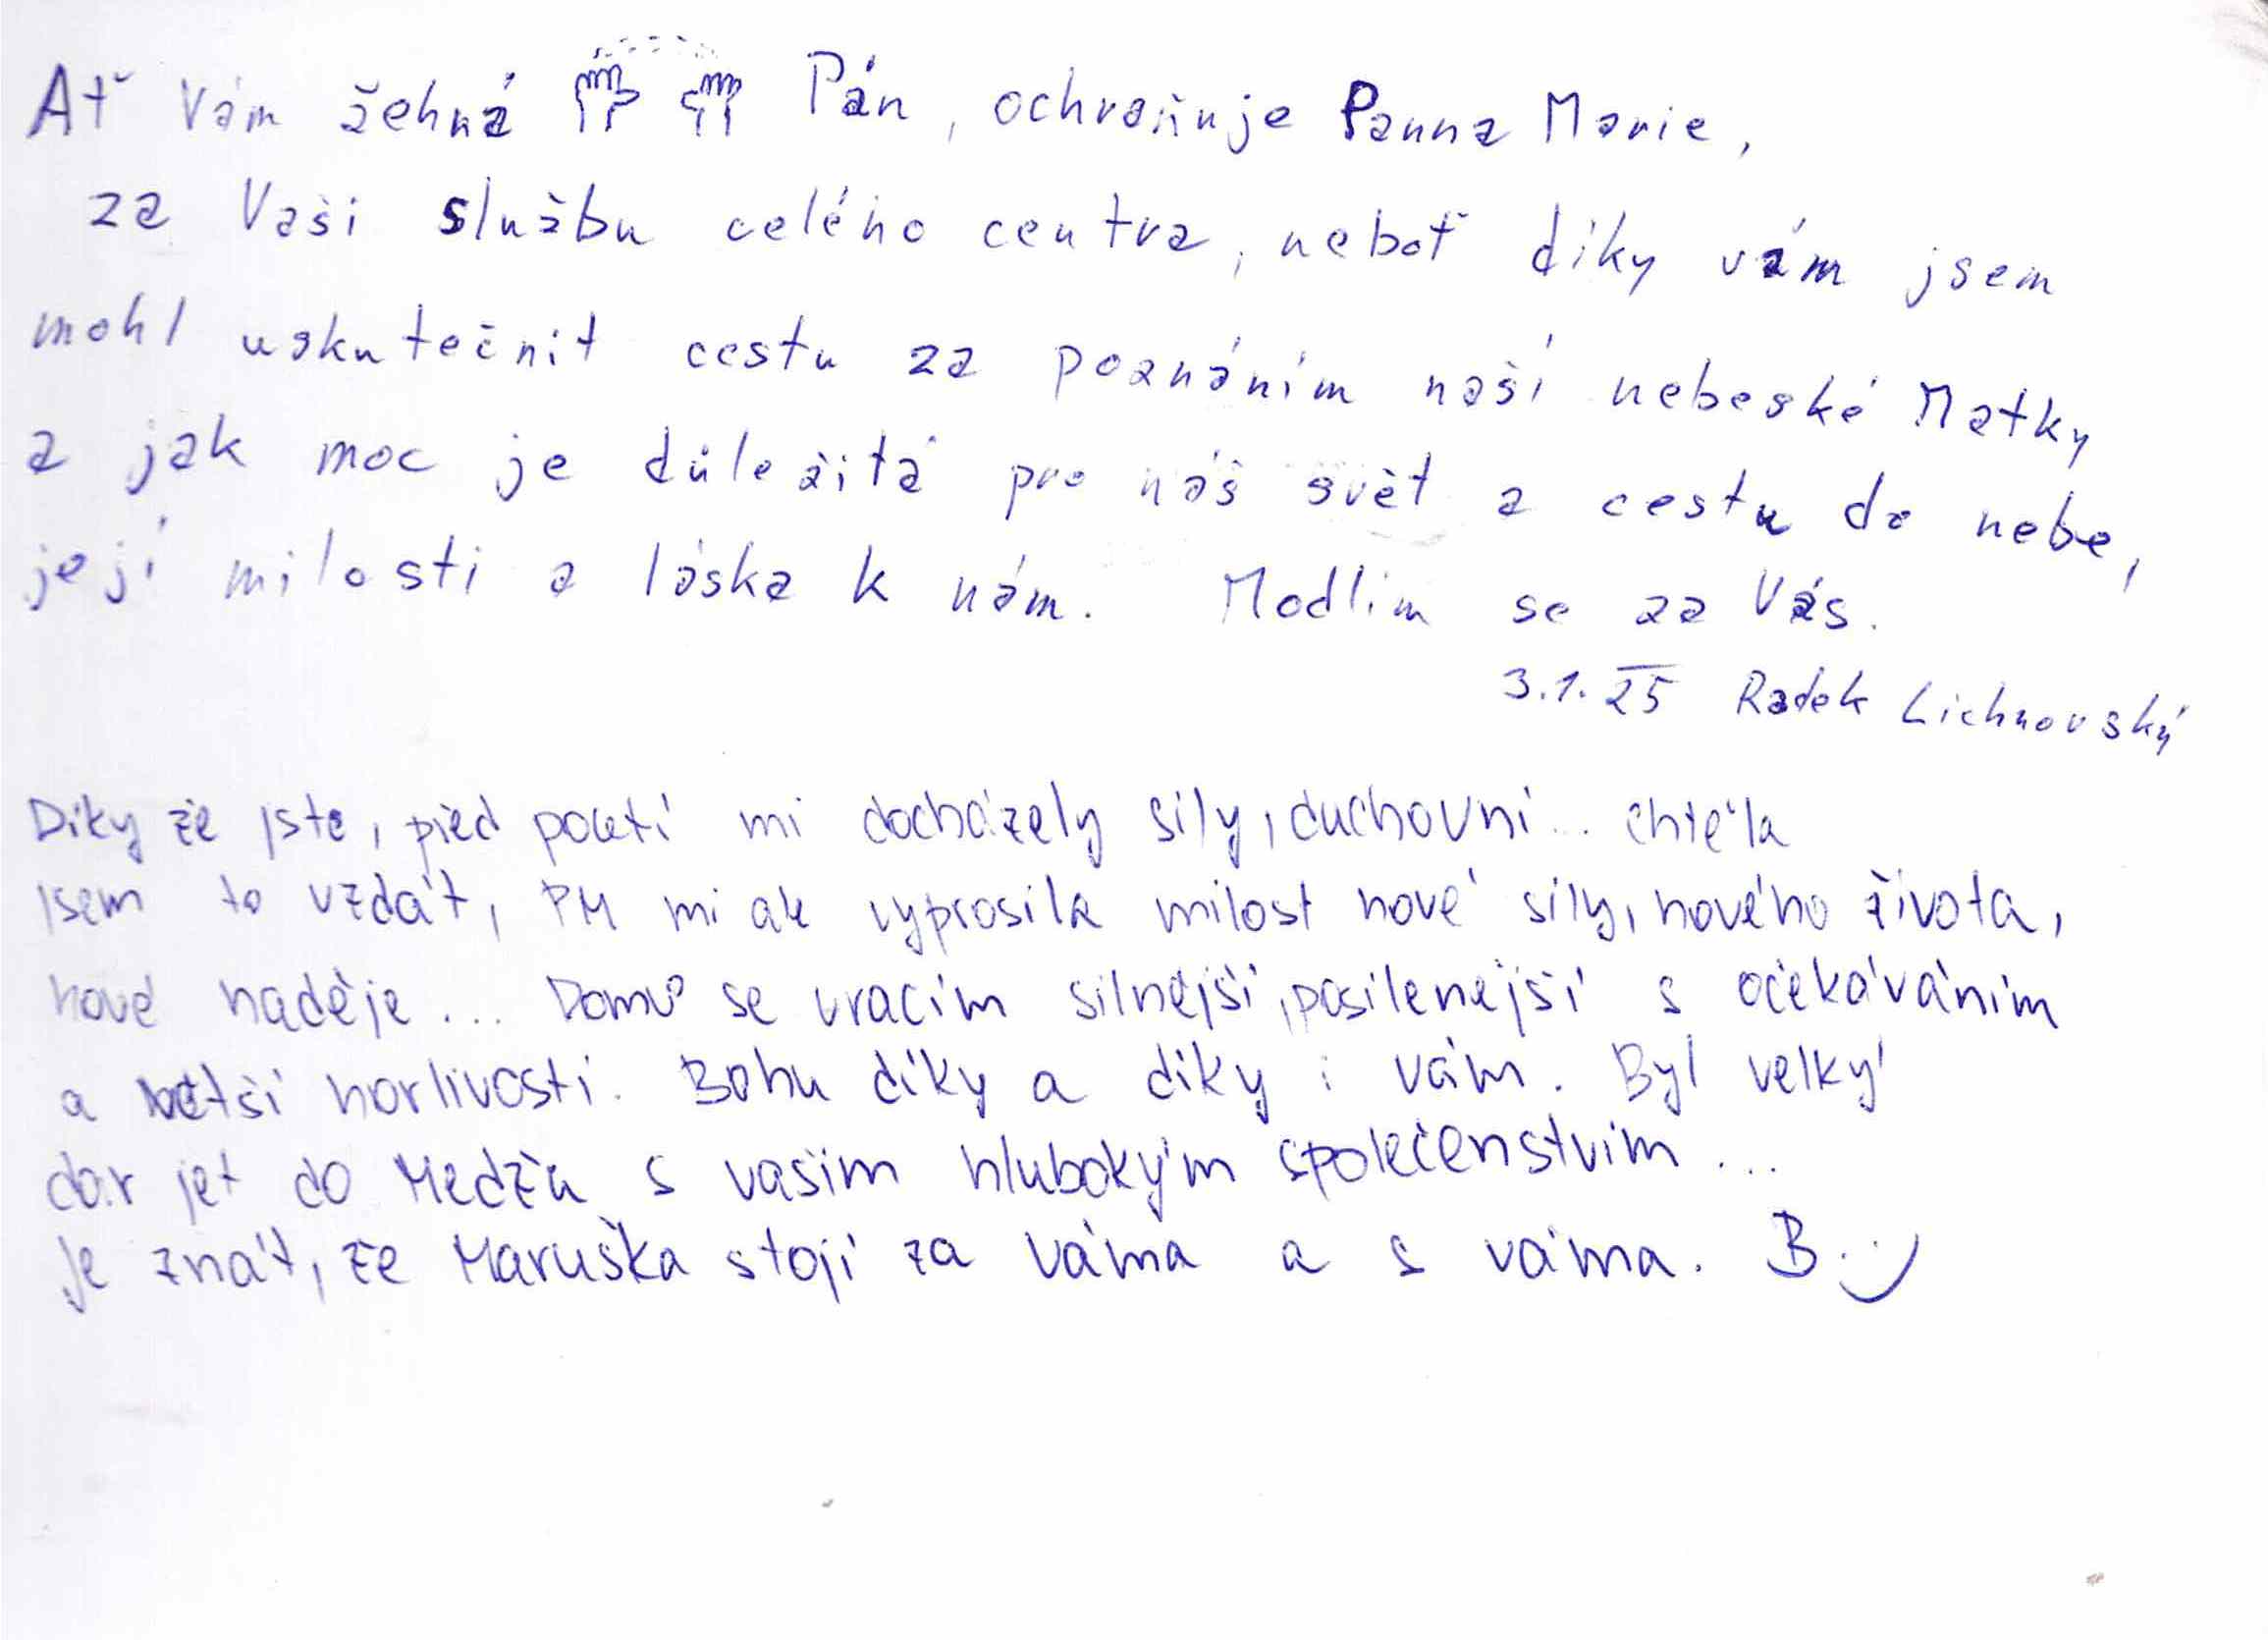 Ať Vám žehná Pán, ochraňuje Panna Marie,
za Vaši službu celého centra, neboť díky vám jsem
mohl uskutečnit cestu za poznáním naší nebeské Matky
a jak moc je důležitá pro náš svět a cestu do nebe,
její milosti a láska k nám. Modlím se za Vás.
3.1.25 Radek Lichnovský
Díky že jste, před poutí mi docházely síly, duchovní... chtěla
jsem to vzdát, PM mi ale vyprosila milost nové síly, nového života,
nové naděje... Domů se vracím silnější, posilenější s očekáváním
a větší horlivostí. Bohu díky a díky i vám. Byl velký
dar jet do Medžu s vašim hlubokým společenstvím...
Je znát, že Maruška stojí za váma a s váma. B :)